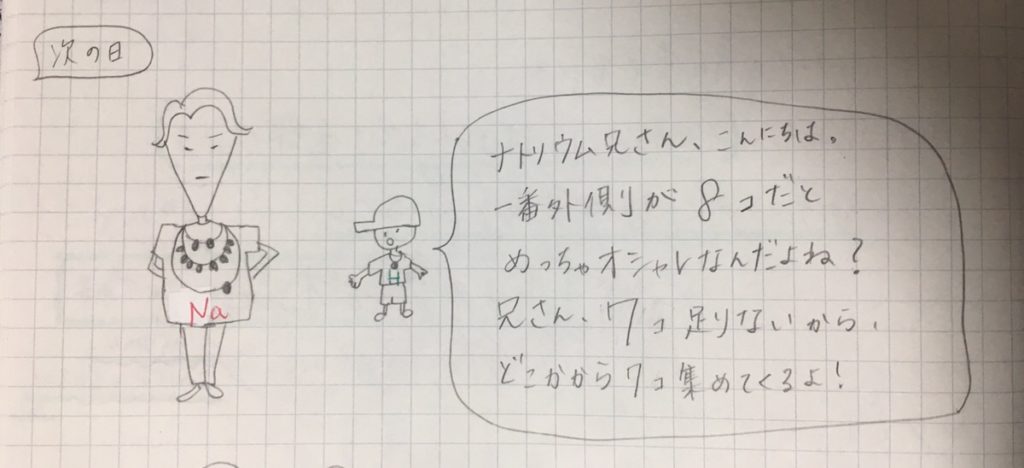 次の日
ナトリウム兄さん、こんにちは。
一番外側が8コだと
めっちゃオシャレなんだよね?
兄さん、7コ足りないから、
どこかから7コ集めてくるよ!
Na
H